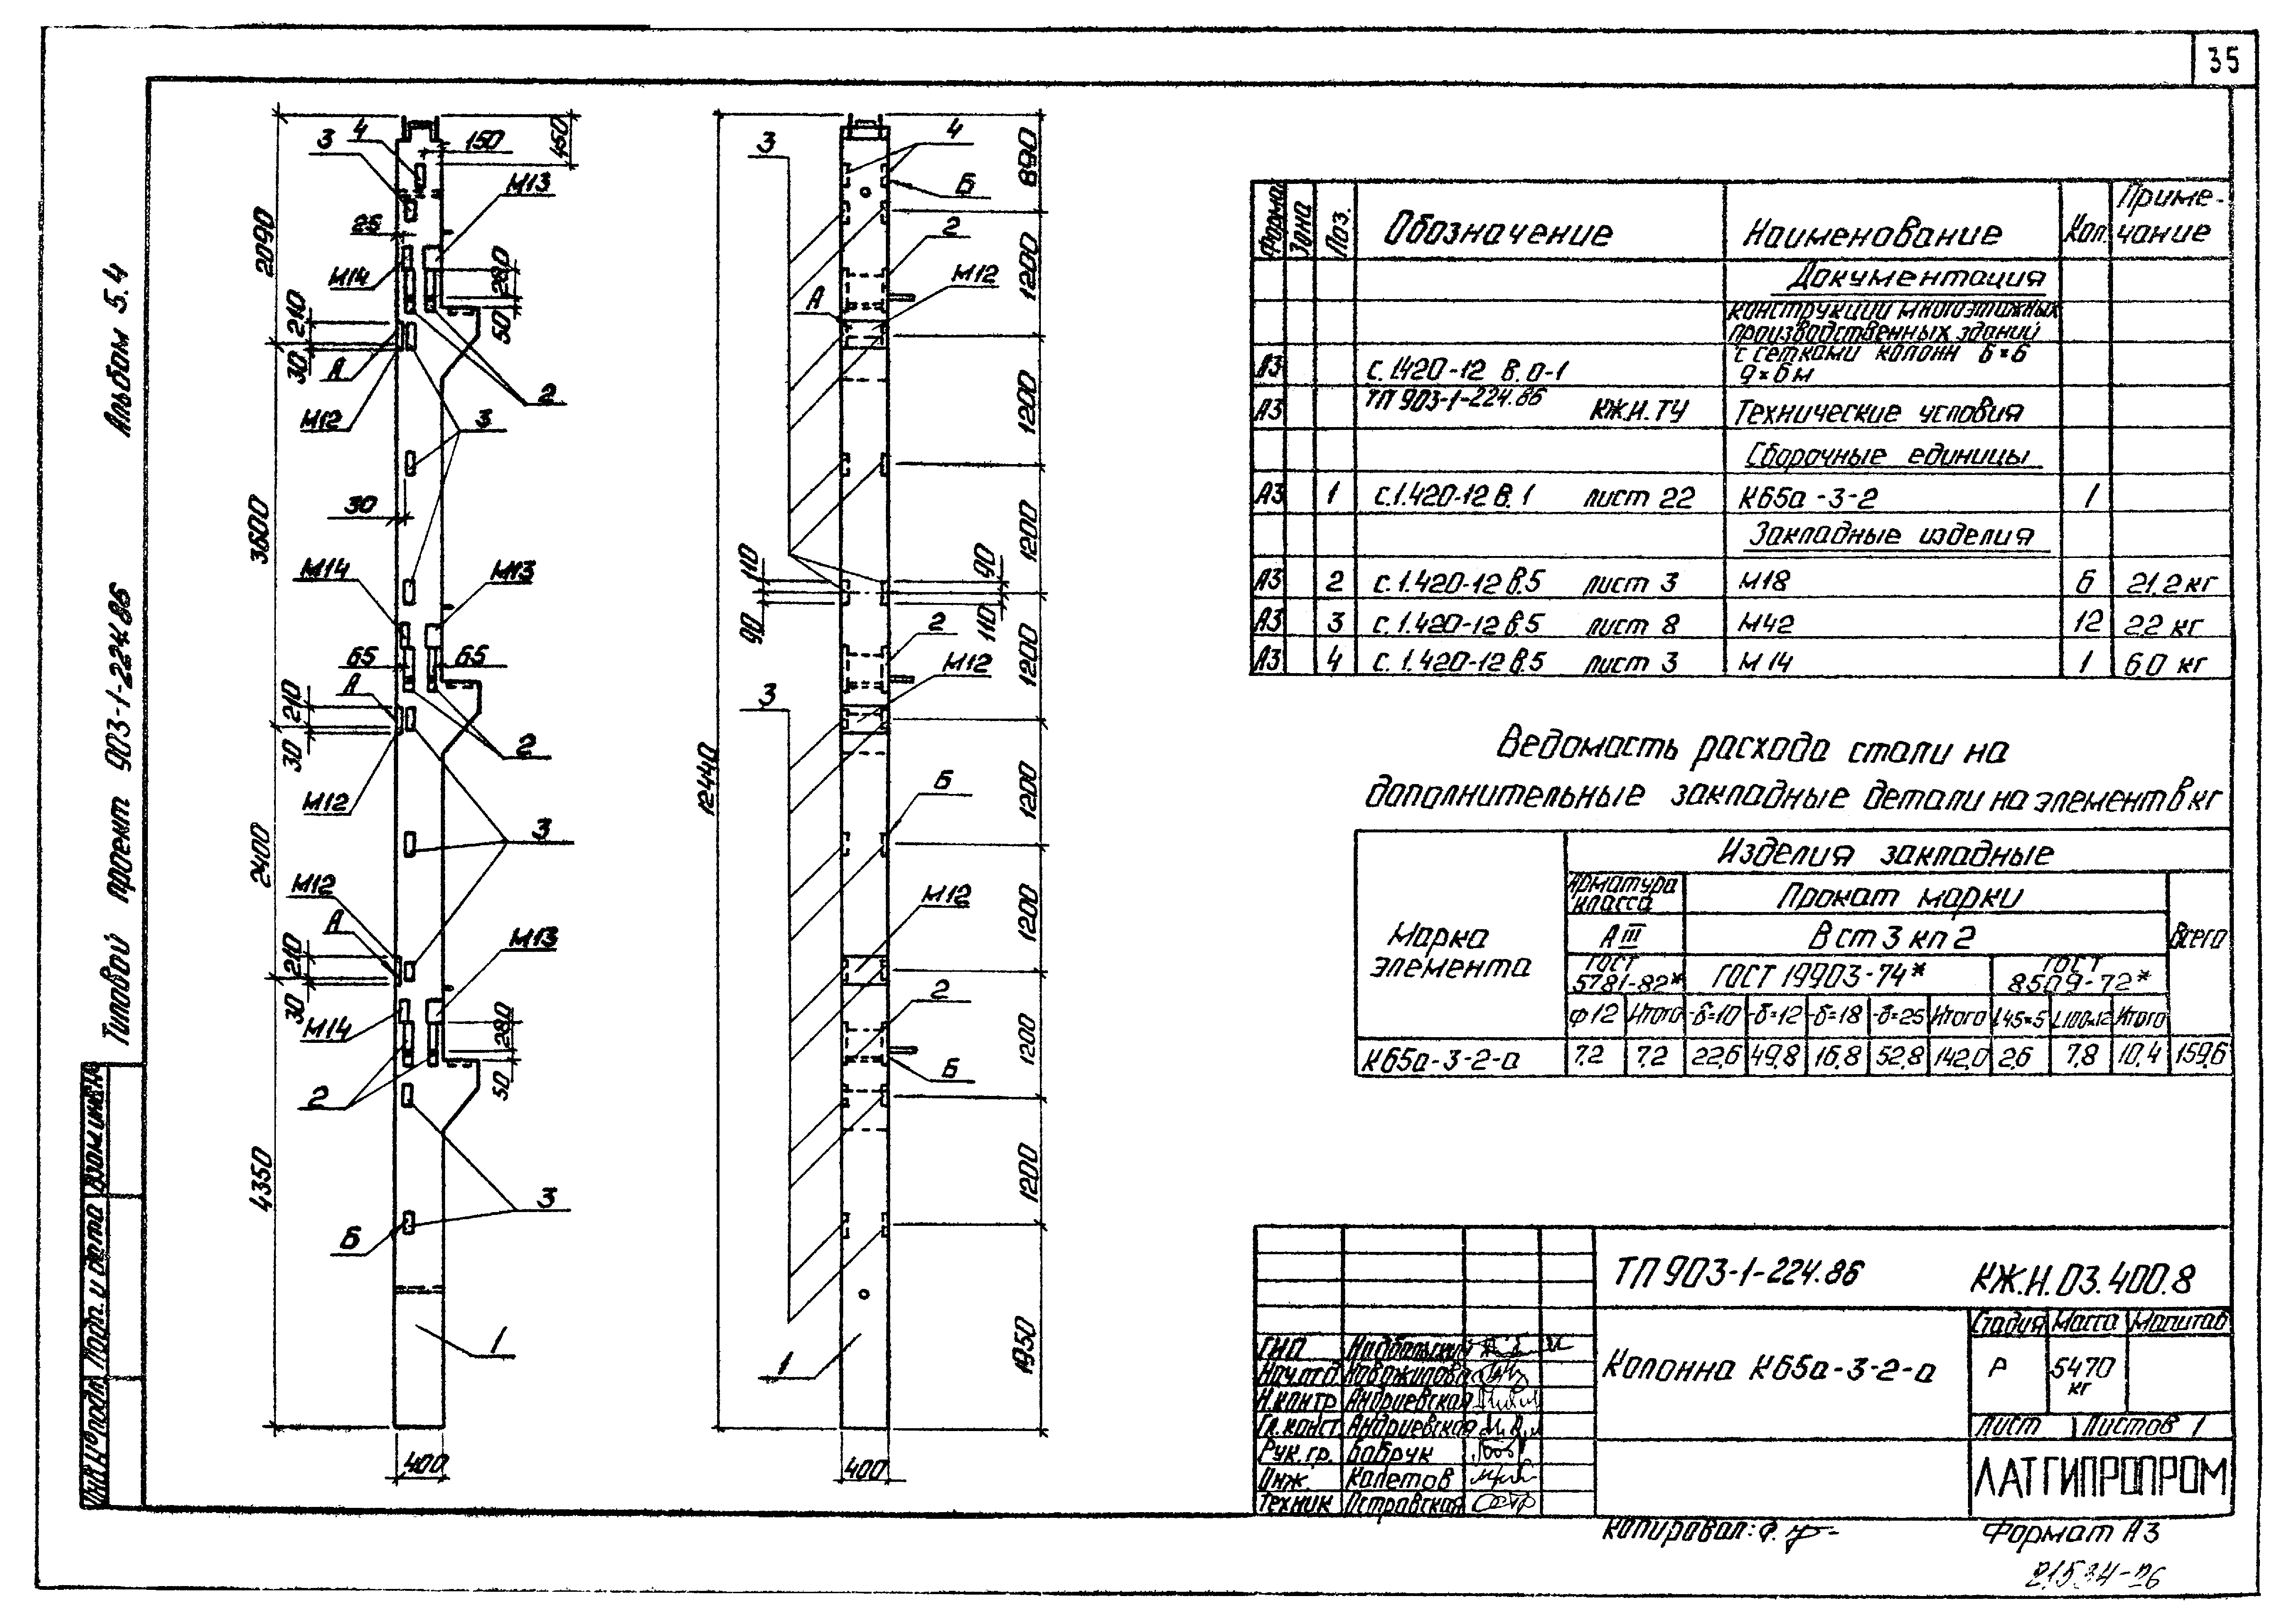 35
Альбом 5.4
Типовой проект 903-1-224.86
Взам.инв.№
Подп. и дата
Инв.№ подл.
3 4 150 450
М13
25
2090
М14
280
50
210
30
А
М12
2
3
3600
30
М14 М13
65 65
А
210
30
2
М12
2400
3
М12
А
210
30
М13
М14
280
50
2
4350
3
Б
1
400
3 4
Б
890
2
М12
А
1200
1200
1200
110
90
90
110
2
М12
1200
3
12440
Б
1200
М12
1200
2
Б
1200
1200
1950
1
400
Формат Зона Поз. Обозначение Наименование Кол. Примечание
Документация
Конструкции многоэтажных
производственных зданий
с сетками колонн 6×6
А3 с.1.420-12 В.0-1 9×6м
А3 ТП 903-1-224.86 КЖ.И.ТУ Технические условия
Сборочные единицы
А3 1 с.1.420-12 В.1 лист 22 К65а-3-2 1
Закладные изделия
А3 2 с.1.420-12 В.5 лист 3 М18 6 21.2 кг
А3 3 с.1.420-12 В.5 лист 8 М42 12 2.2 кг
А3 4 с.1.420-12 В.5 лист 3 М14 1 6.0 кг
Ведомость расхода стали на
дополнительные закладные детали на элемент в кг
Марка элемента
Изделия закладные
Арматура класса Прокат марки Всего
А III В ст 3 кп 2
ГОСТ 5781-82* ГОСТ 19903-74* ГОСТ 8509-72*
ф12 Итого -δ=10 -δ=12 -δ=18 -δ=25 Итого L45×5 L100×12 Итого
К65а-3-2-а 7.2 7.2 22,6 49,8 16,8 52,8 142,0 2,6 7,8 10,4 159,6
ТП 903-1-224.86 КЖ.И.03.400.8
Колонна К65а-3-2-а
Стадия Масса Масштаб
Р 5470 кг
Лист Листов 1
ЛАТГИПРОПРОМ
ГИП Надбальский
Нач.отд.
Н.контр. Андриевская
Гл.конст. Андриевская
Рук.гр. Бабрук
Инж. Капетов
Техник Островская
Копировал:
Формат А3
21534-26